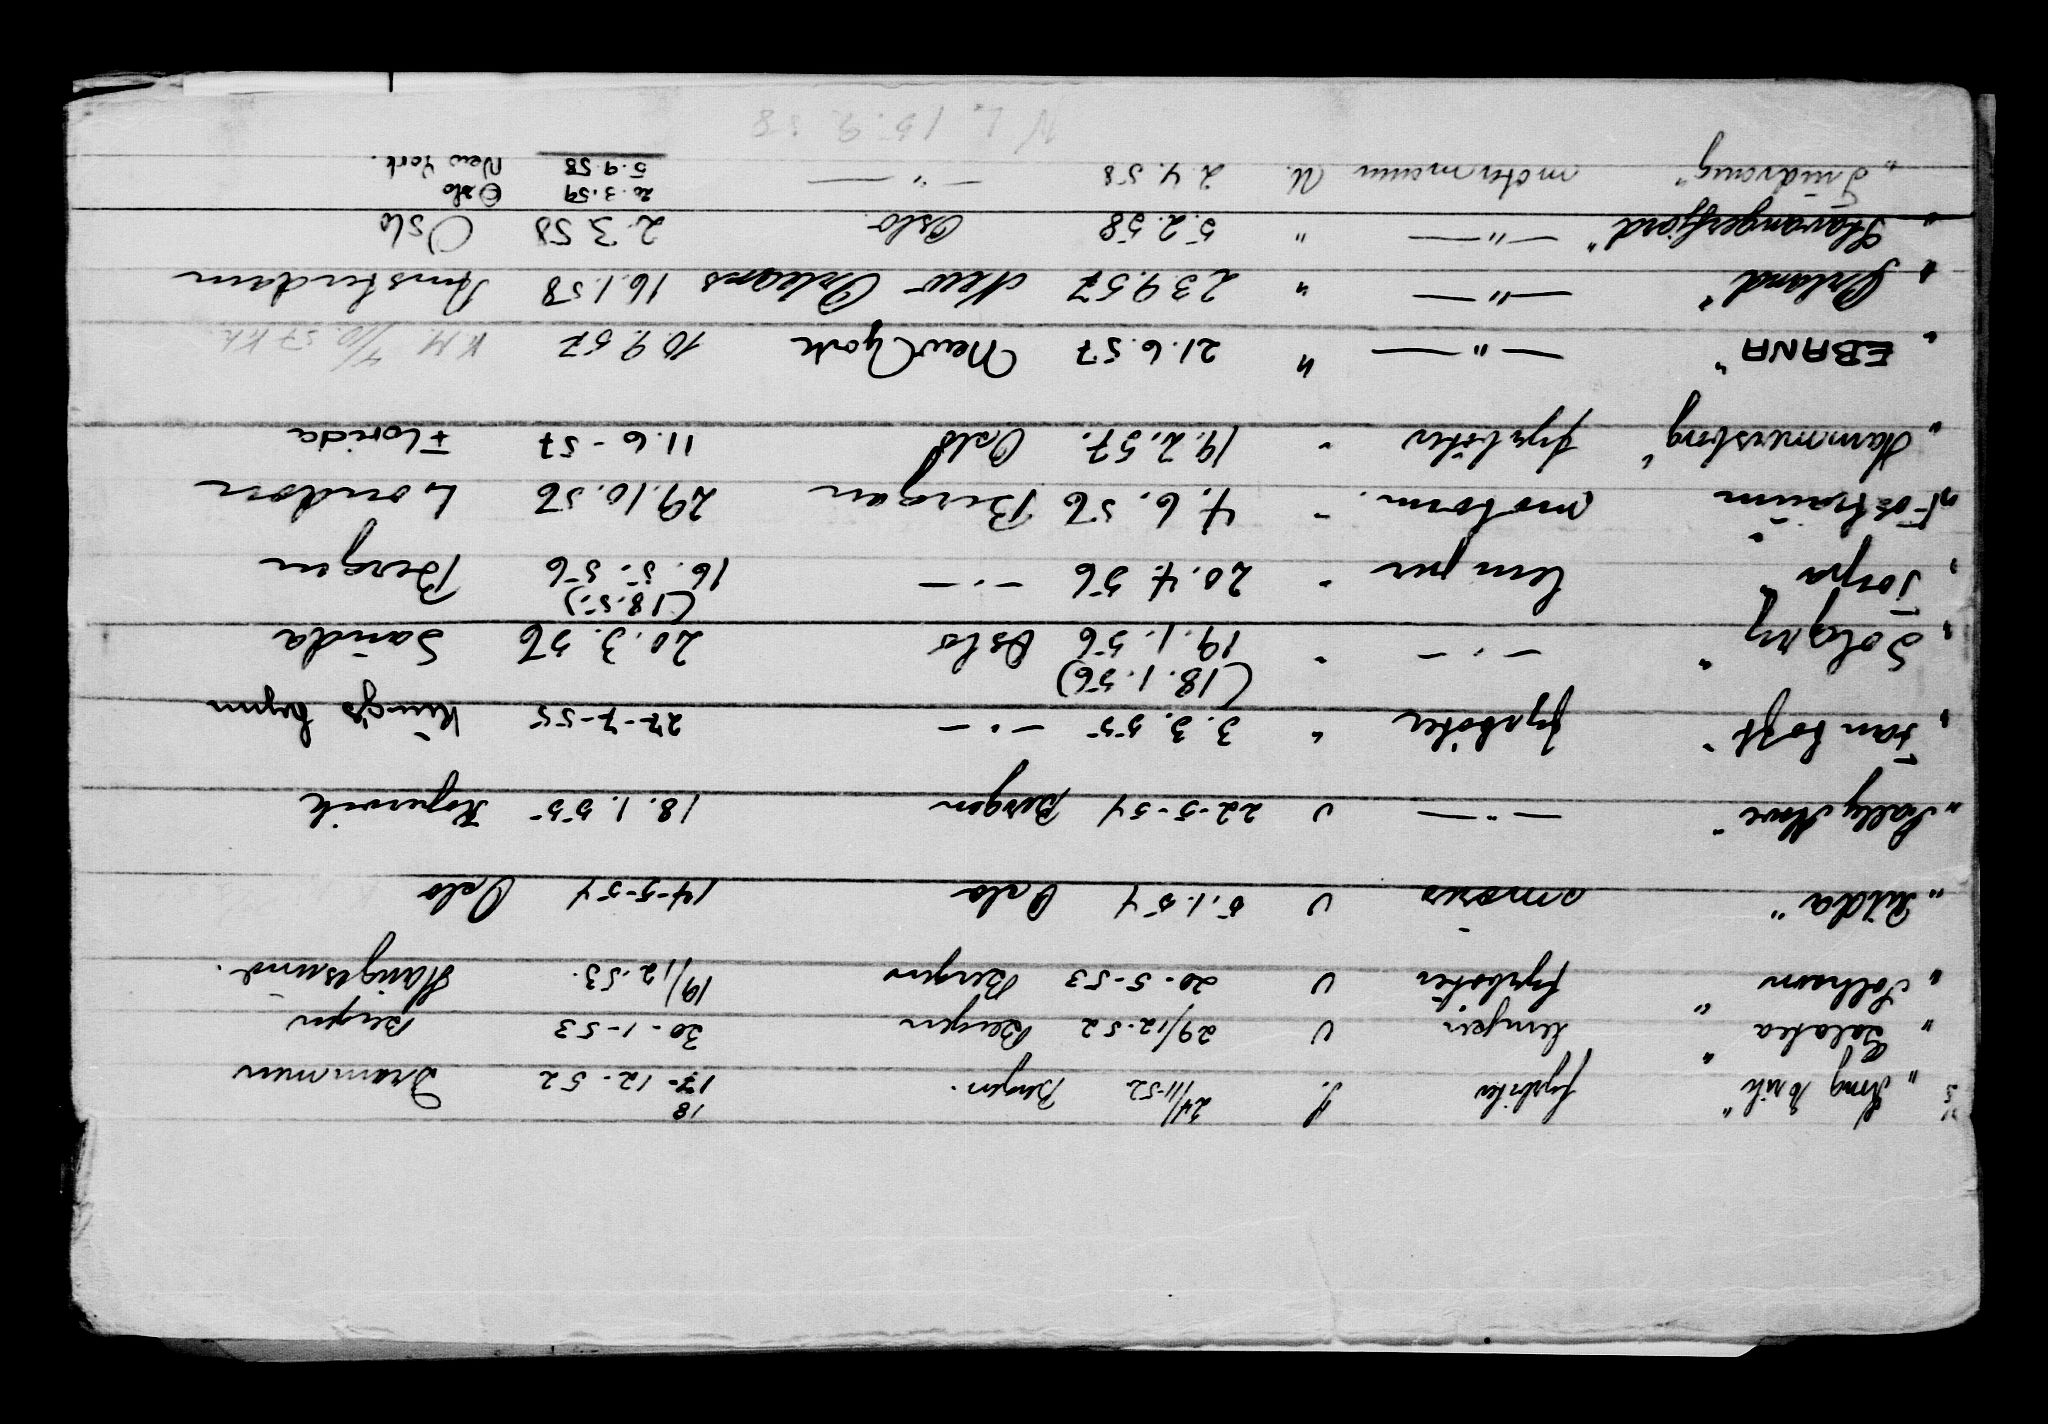 D/S "Kong Erik" fyrböter S. 24/11-52 Bergen. 18 17-12-52 Drammen
" Galatea " lemper U 29/12-52 Bergen 30-1-53 Bergen
" Solhavn " fyrböter U 20-5-53 Bergen 19/12-53. Haugesund.
" Röldra " smörer U 5.1.54 Oslo 14-5-54 Oslo
" Sally Move " — " — U 22-5-54 Bergen 18.1.55 Kopervik
" San Toft " fyrböter " 3.3.55 — " — 27-7-55 King's Lynn
(18.1.56)
" Solgry " — " — " 19.1.56 Oslo 20.3.56 Sauda
(18.5.)
" Torpa " lemper " 20.4.56 — " — 16.5.56 Bergen
" Fostraum " motorm. " 4.6.56 Bergen 29.10.56 London
" Hammersborg " fyrböter " 19.2.57. Oslo 11.6-57 Florida
" EBANA " — " — " 21.6.57 New York 10.9.57 K.M. 4/10.57 KK
" Ørland " — " — " 23.9.57 New Orleans 16.1.58 Amsterdam
" Stavangerfjord " — " — " 5.2.58 Oslo 2.3.58 Oslo
20.3.59 Oslo
" Tindvang " motormann U. 2.4.58 — " — 5.9.58 New York.
N.L. 15.9.58